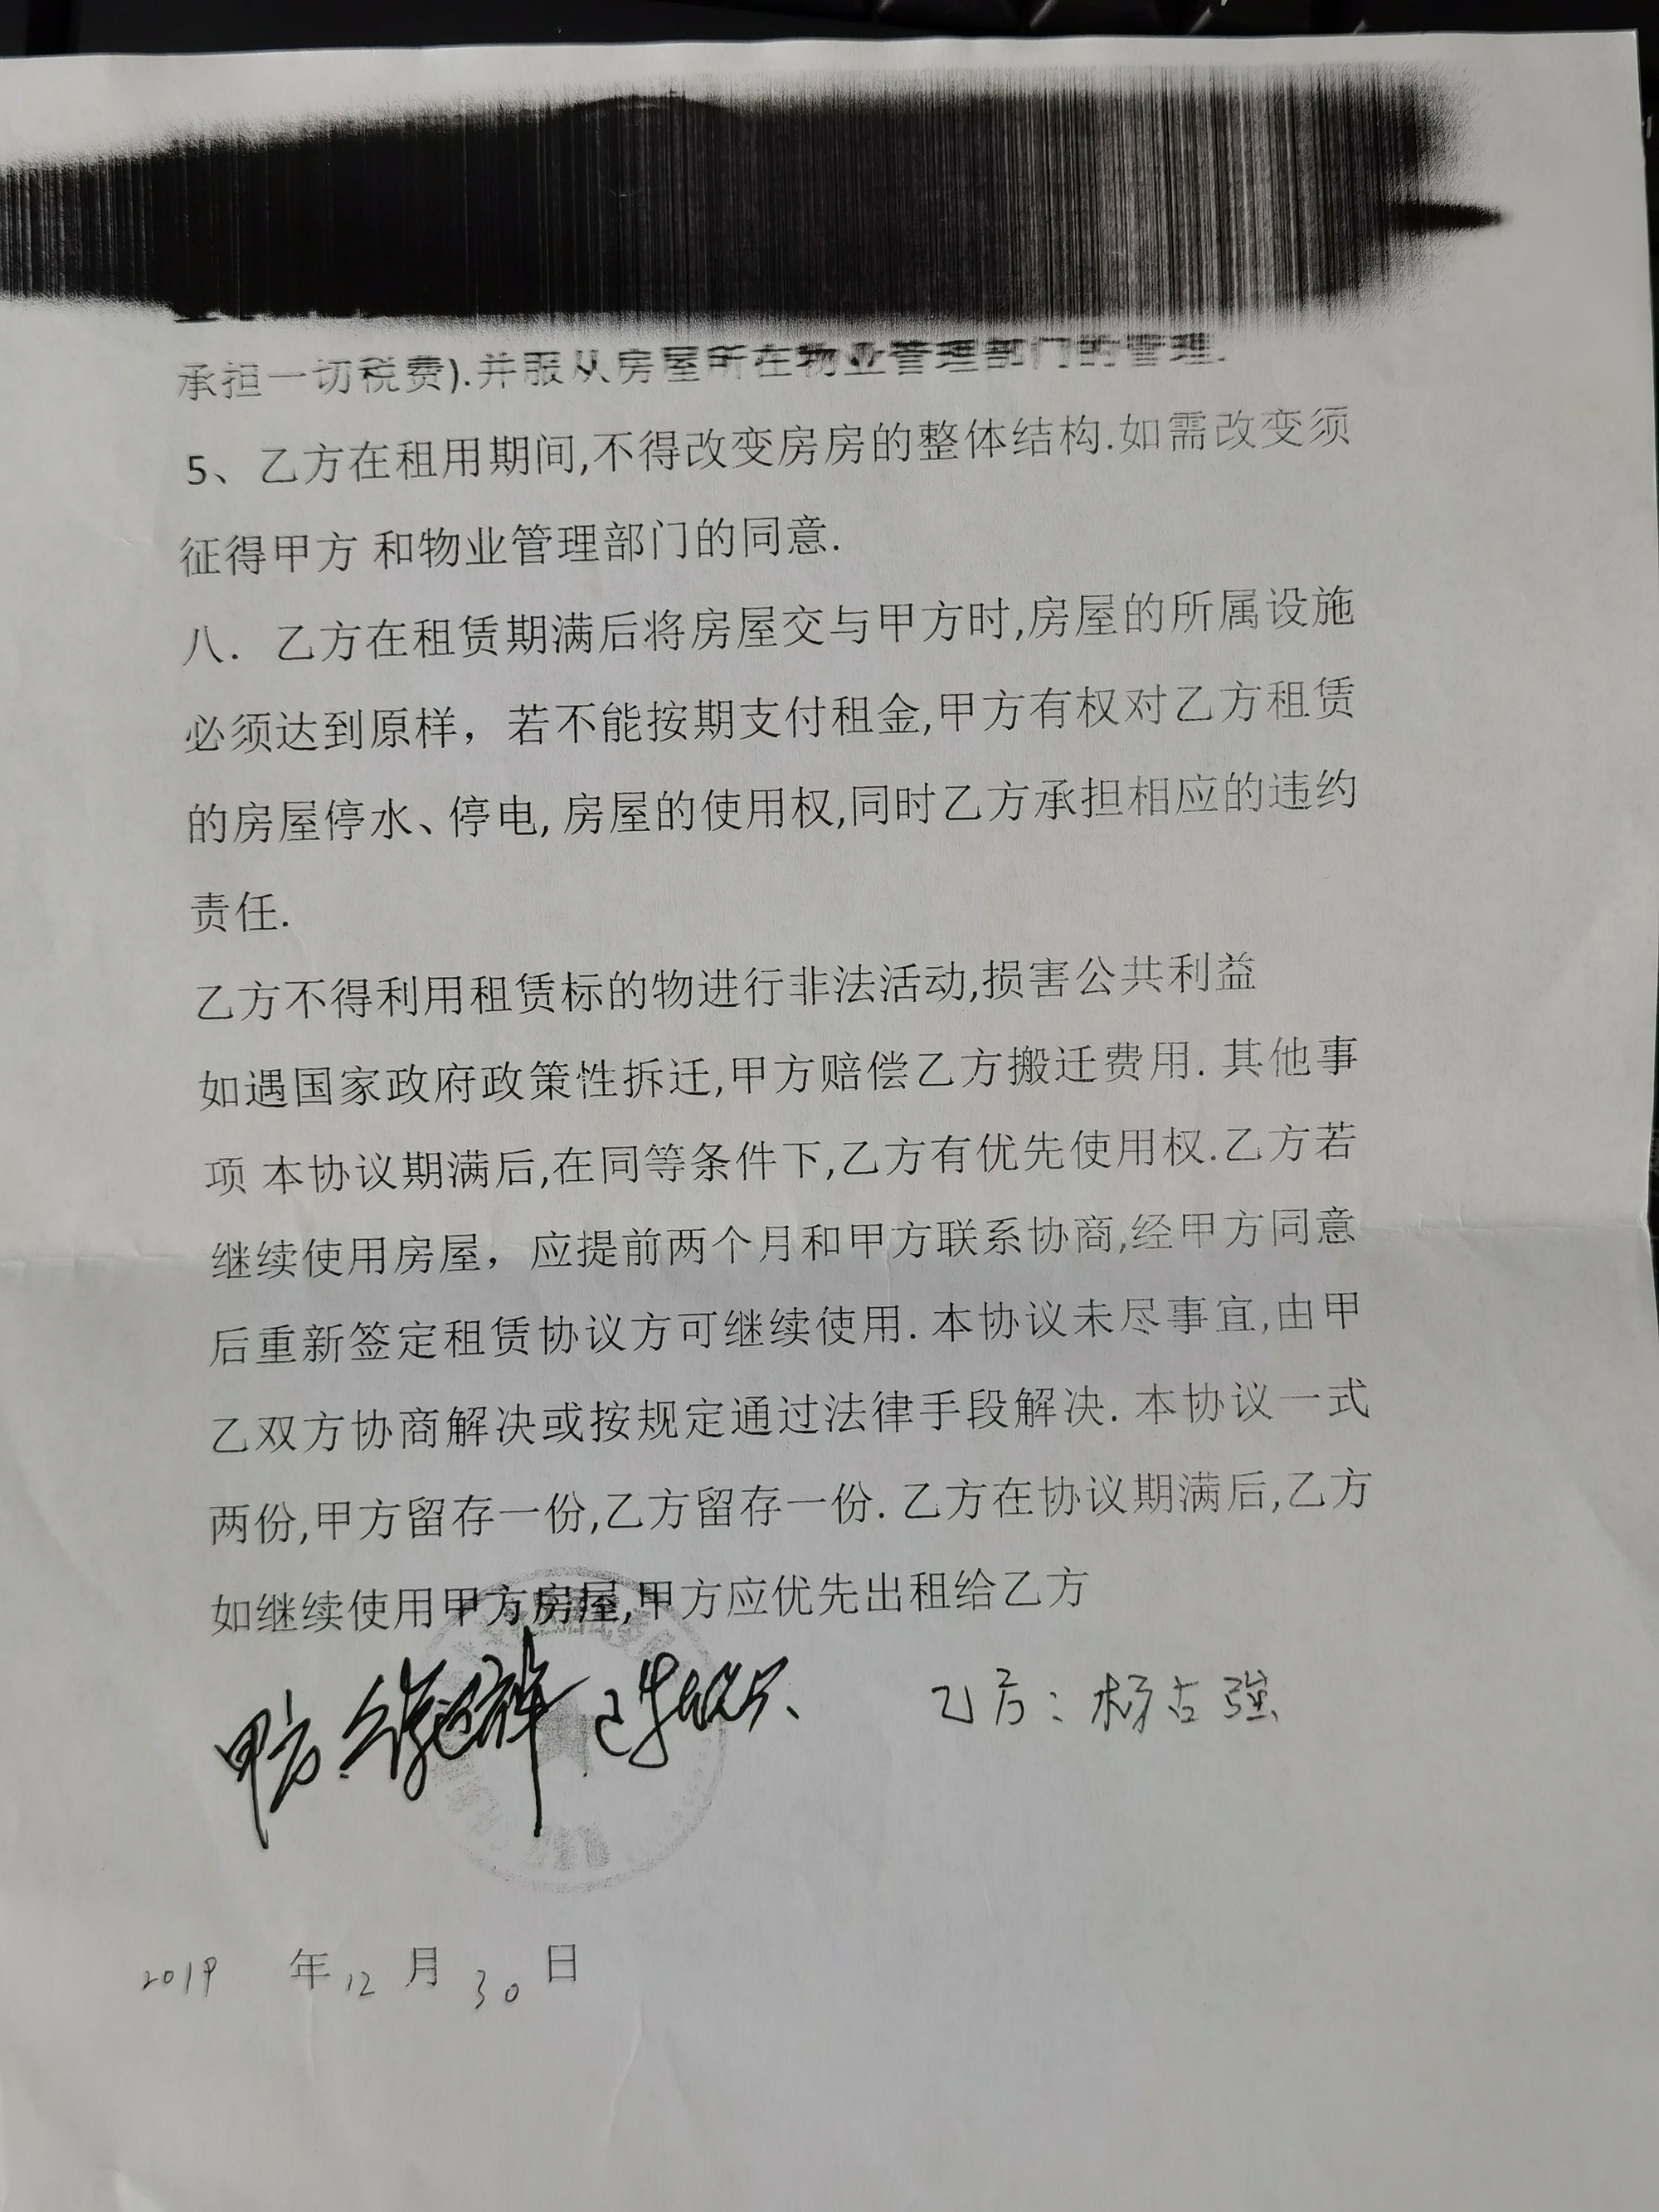 承担一切税费).并服从房屋所在物业管理部门的管理.
5、乙方在租用期间,不得改变房房的整体结构.如需改变须
征得甲方 和物业管理部门的同意.
八. 乙方在租赁期满后将房屋交与甲方时,房屋的所属设施
必须达到原样，若不能按期支付租金,甲方有权对乙方租赁
的房屋停水、停电, 房屋的使用权,同时乙方承担相应的违约
责任.
乙方不得利用租赁标的物进行非法活动,损害公共利益
如遇国家政府政策性拆迁,甲方赔偿乙方搬迁费用. 其他事
项 本协议期满后,在同等条件下,乙方有优先使用权.乙方若
继续使用房屋，应提前两个月和甲方联系协商,经甲方同意
后重新签定租赁协议方可继续使用. 本协议未尽事宜,由甲
乙双方协商解决或按规定通过法律手段解决. 本协议一式
两份,甲方留存一份,乙方留存一份. 乙方在协议期满后,乙方
如继续使用甲方房屋,甲方应优先出租给乙方
甲方
乙方：杨古强
2019 年 12 月 30 日